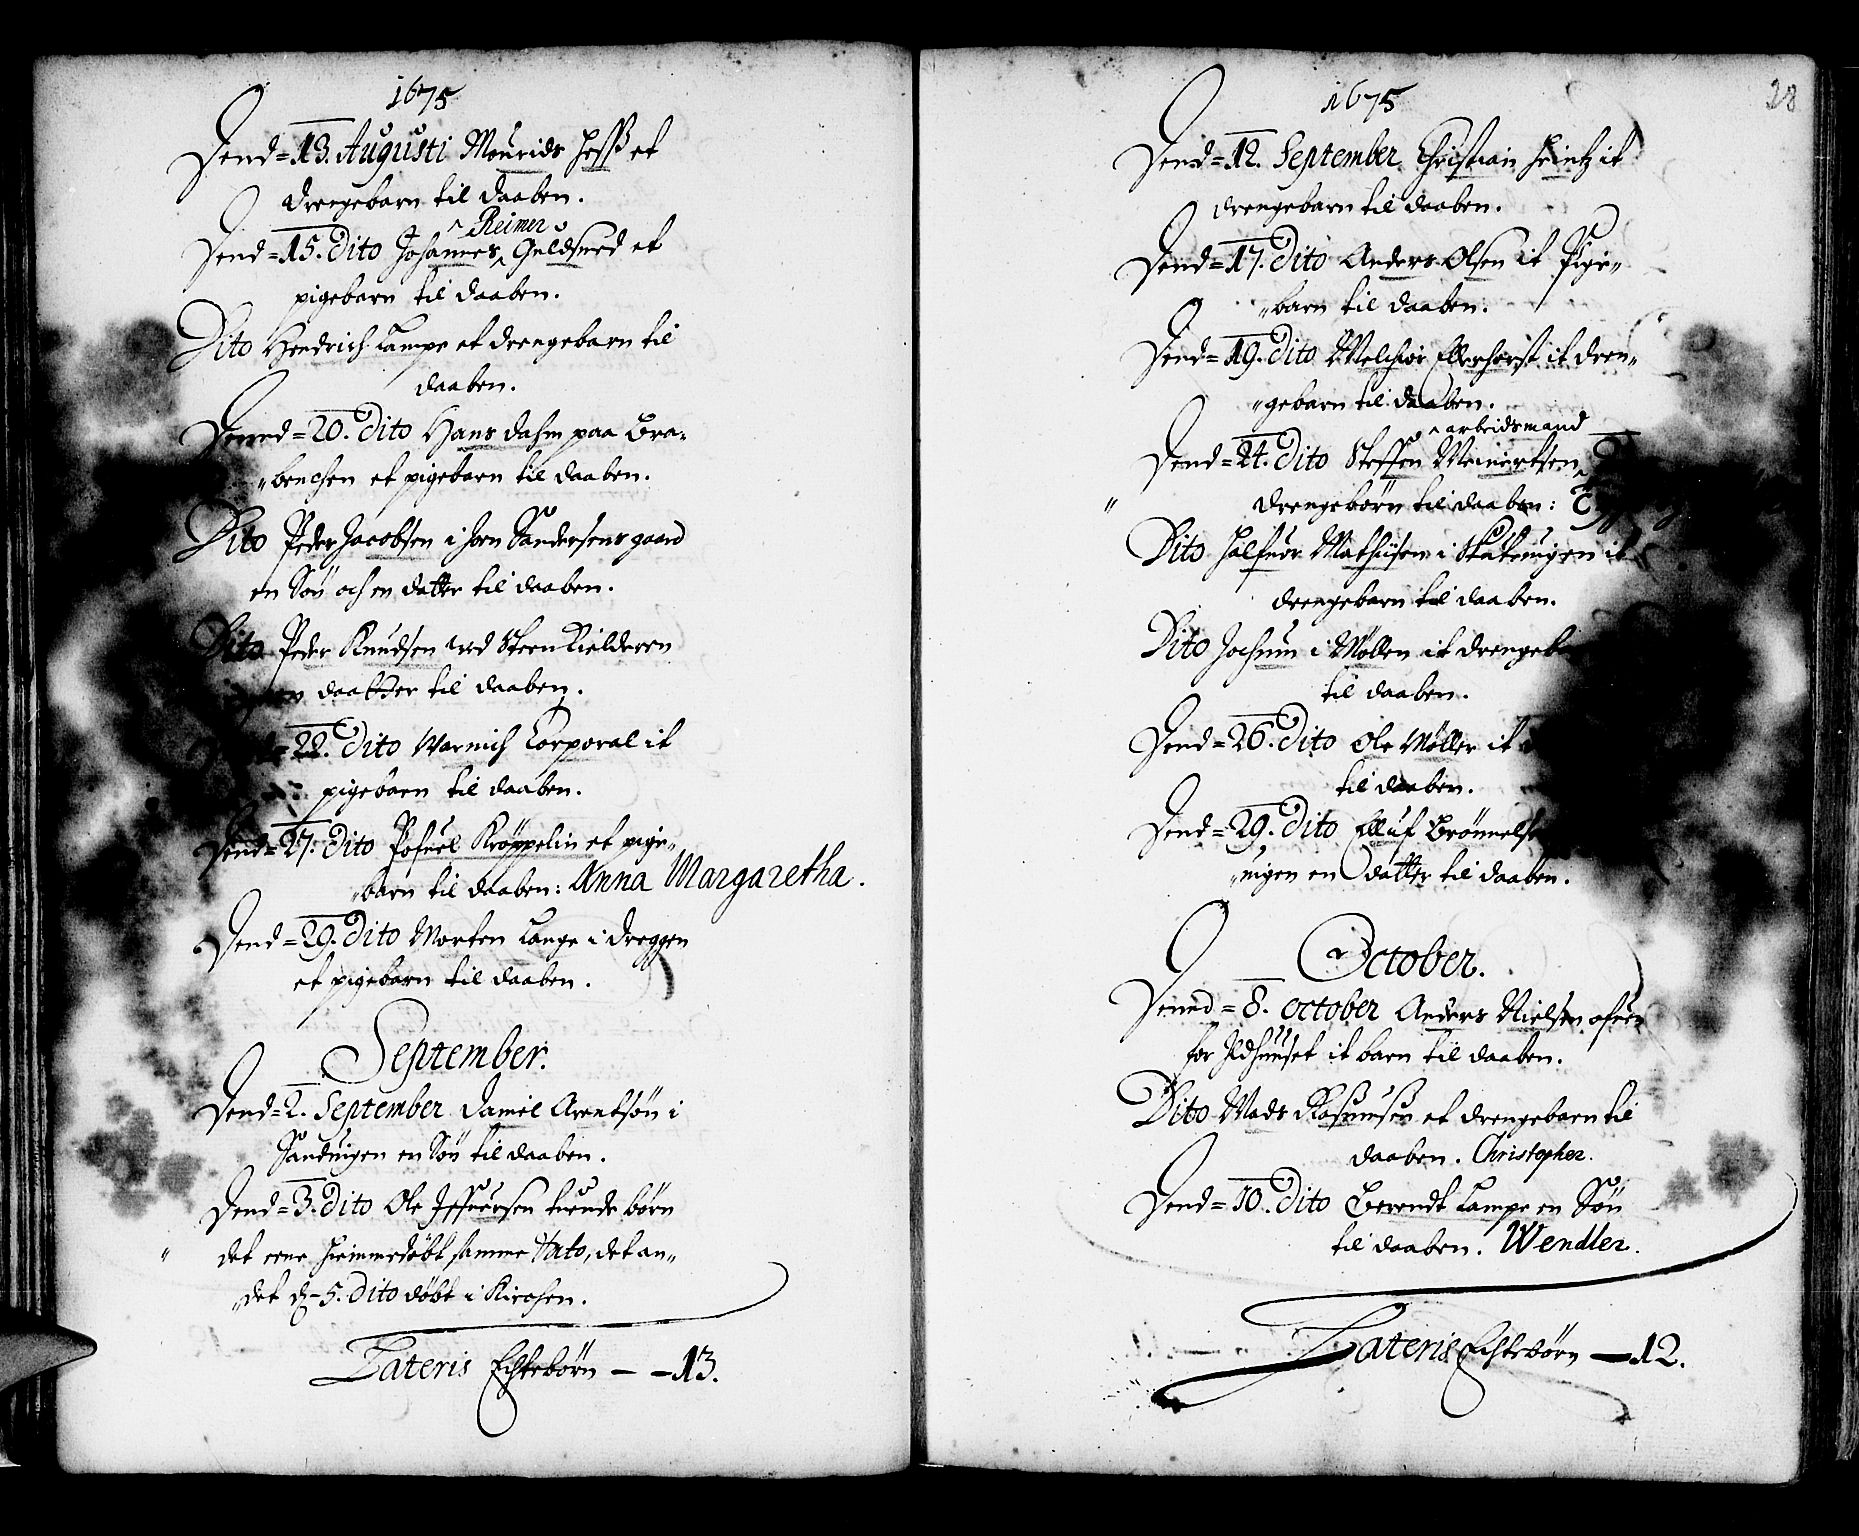 1675
Dend=13. Augusti Mourids Hess et
drengebarn til daaben.
Reimer
Dend=15. Dito Johannes Guldsmed et
pigebarn til daaben.
Dito Hendrich Lampe et drengebarn til
daaben.
Dend=20. Dito Hans Dahm paa Bra-
benchen et pigebarn til daaben.
Dito Peder Jacobsen i Jorn Sandersens gaard
en Søn och en datter til daaben.
Dito Peder Knudsen ved Steen Kielderen
daatter til daaben.
=22. Dito Warnich Corporal it
pigebarn til daaben.
Dend=27. Dito Pofuel Kröppelin et pige-
barn til daaben: Anna Margaretha.
Dend=29. Dito Morten Lange i Dreggen
et pigebarn til daaben.
September.
Dend=2. September Daniel Arentsøn i
Sandvigen en Søn til daaben.
Dend=3. Dito Ole Iffuersen tuende børn
det eene hiemmedøbt samme Dato, det an-
det d. 5. Dito døbt i Kirchen.
Lateris Echtebørn — -13.
28
1675
Dend=12. September Christian Heintz it
drengebarn til daaben.
Dend=17. Dito Anders Olsen it Pige-
barn til daaben.
Dend=19. Dito Melchior Ellerhorst it dren-
gebarn til daaben.
arbeidsmand
Dend=24. Dito Steffen Meinertsen
drengebørn til daaben:
Dito Halfuor Mathiisen i Skutevigen it
drengebarn til daaben.
Dito Jochum i Møllen it drengeba
til daaben.
Dend=26. Dito Ole Møller it
til daaben.
Dend=29. Dito Elluf Brønnelse
vigen en datter til daaben.
October.
Dend=8. october Anders Nielsen ofuen
for Ildhuuset it barn til daaben.
Dito Mads Rasmusen et drengebarn til
daaben. Christopher.
Dend=10. Dito Berendt Lampe en Søn
til daaben. Wendler.
Lateris Echtebørn —12.